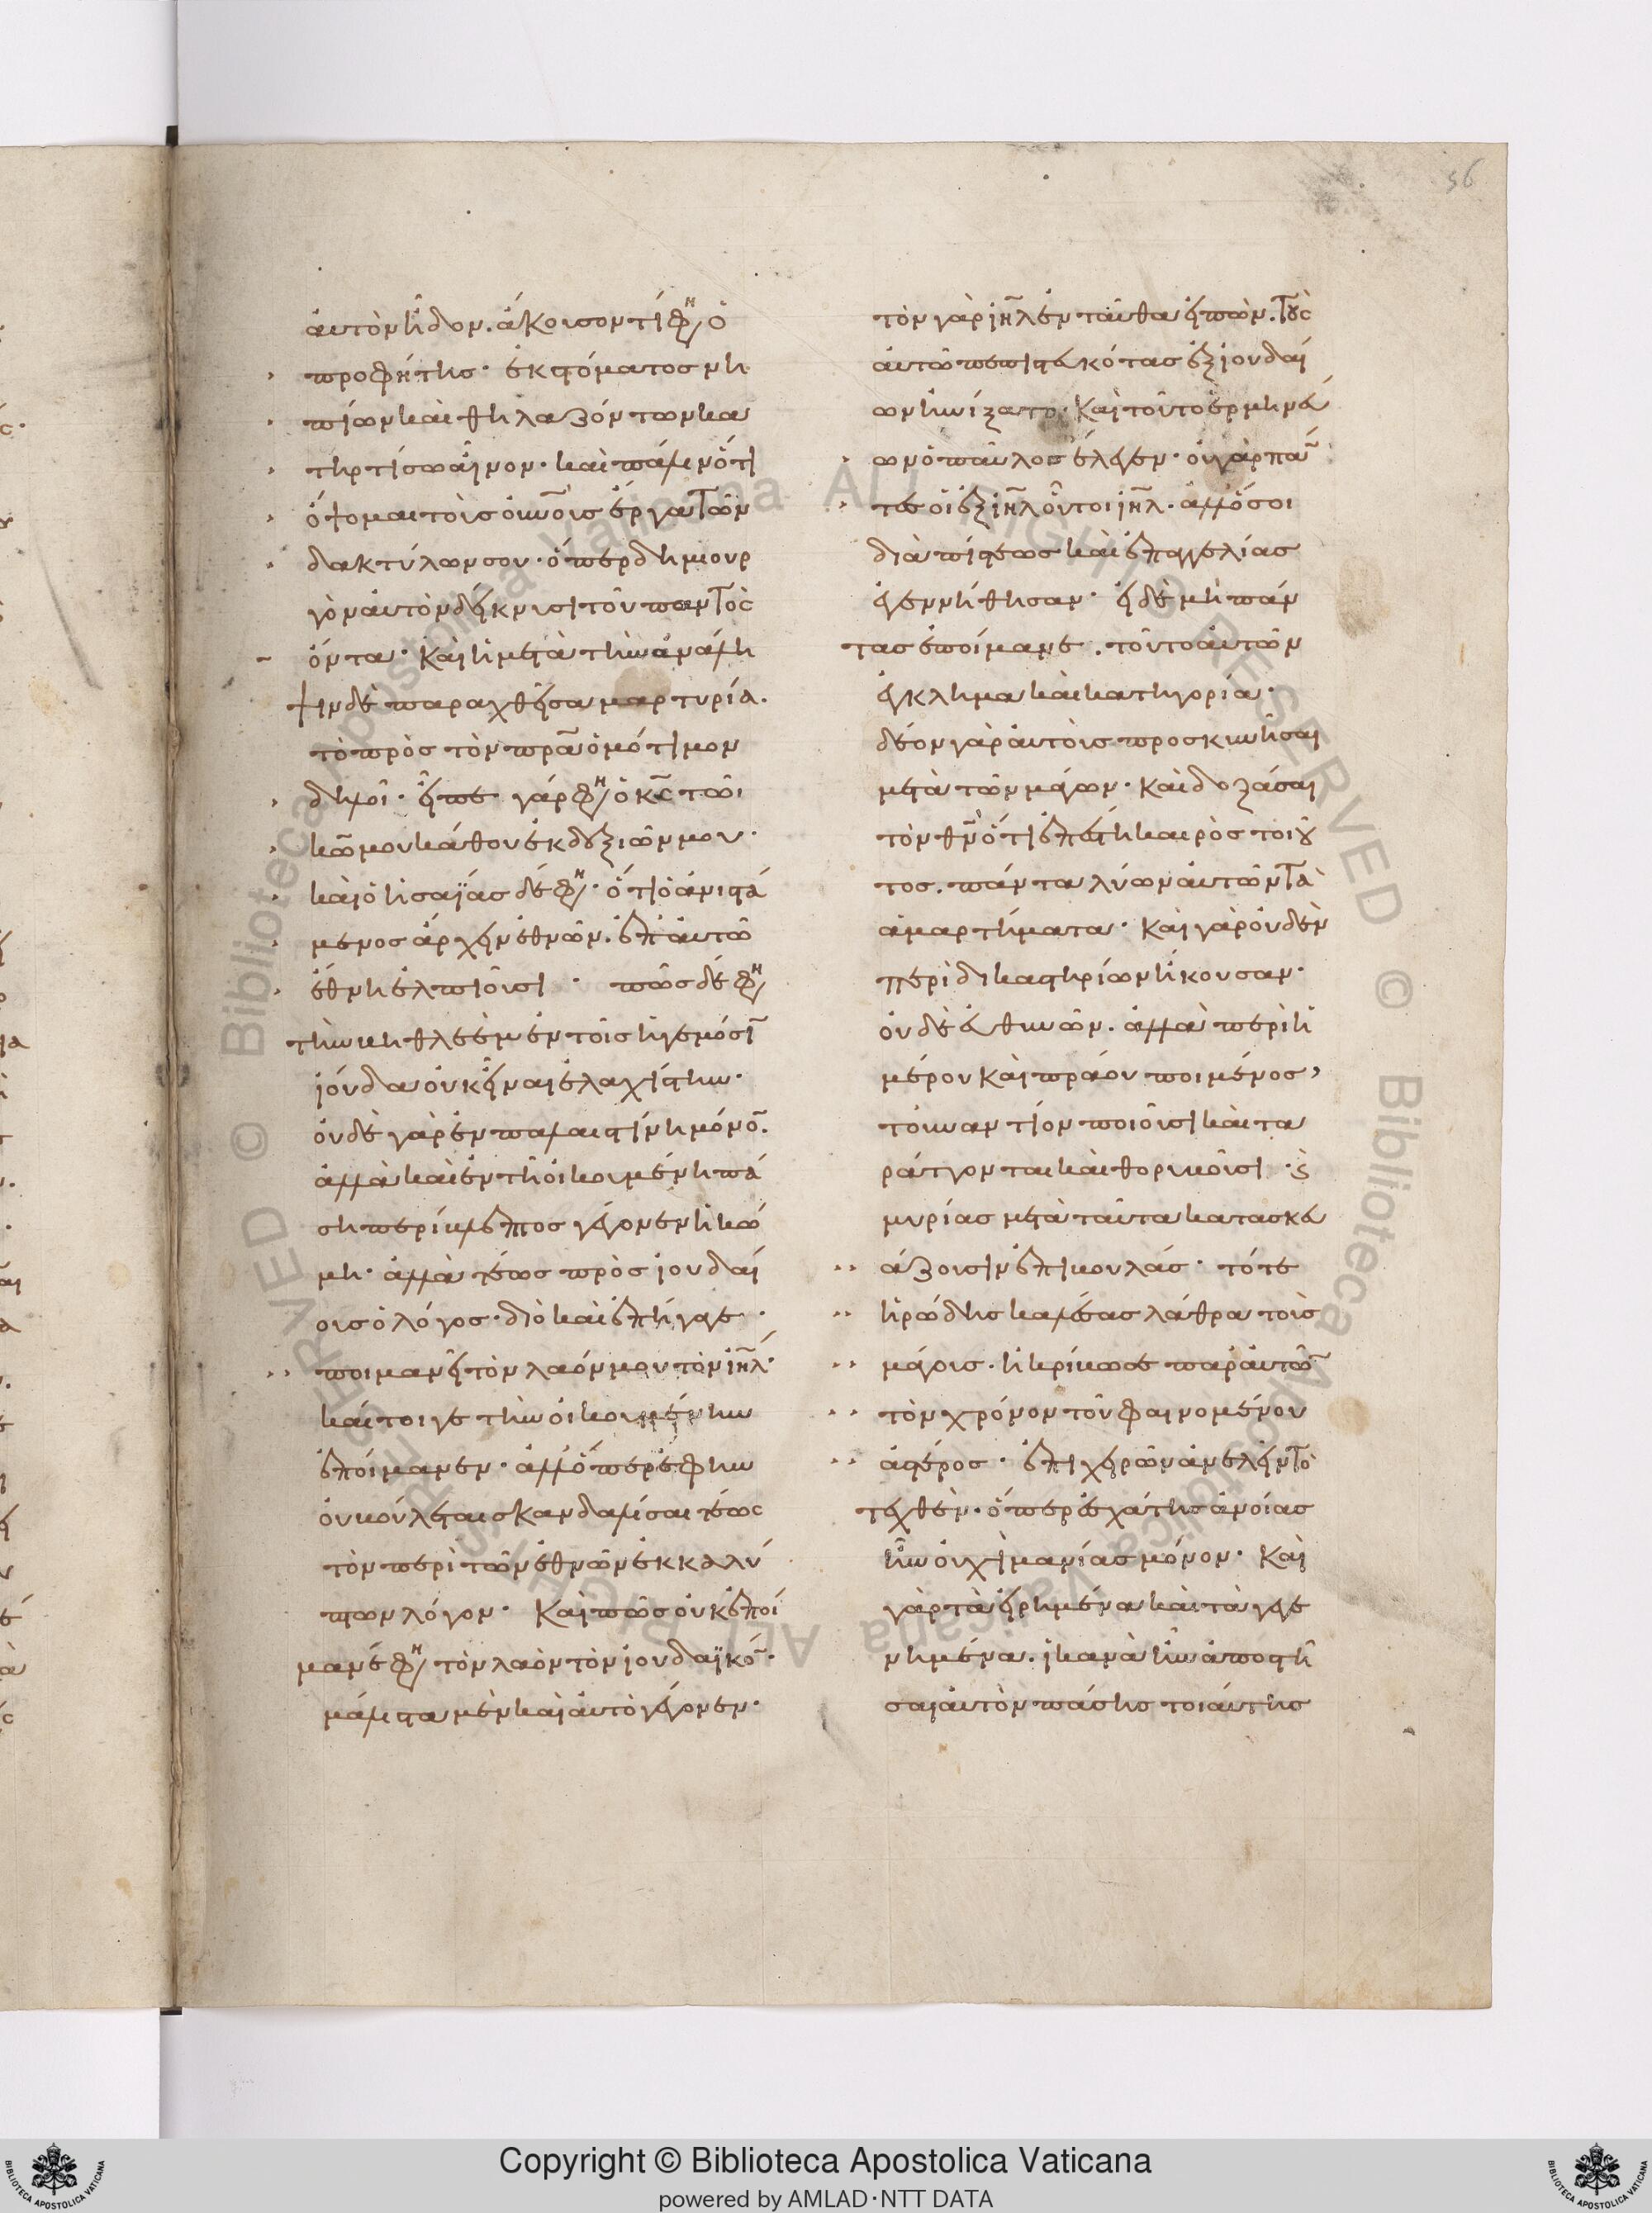 56
αὐτὸν ἦιδον. ἄκουσον τί φη(ˊ) ὁ
προφήτης· ἐκ στόματος νη
πίων καὶ θηλαζόντων κα
τηρτίσω αἶνον· καὶ πάλιν ὅτι
ὄψομαι τοὺς οὐνοὺς ἔργα τῶν
δακτύλων σου· ὅπερ δημιουρ
γὸν αὐτὸν δείκνυσι τοῦ παντὸς
ὄντα· Καὶ ἡ μετὰ τὴν ἀνάλη
ψιν δὲ παραχθεῖσα μαρτυρία.
τὸ πρὸς τὸν πρα ὁμότιμον
δηλοῖ· εἶπε γάρ φη ὁ κς τῶι
κω μου κάθου ἐκ δεξιῶν μου·
καὶ ὁ ἡσαΐας δέ φη· ὅτι ὁ ἀνιστά
μενος ἄρχειν ἐθνῶν. ἐπ αὐτῶ
ἔθνη ἐλπιοῦσι · πῶς δέ φη
τὴν βηθλεὲμ ἐν τοῖς ἡγεμόσι
ἰούδα οὐκ εἶναι ἐλαχίστην·
οὐδὲ γὰρ ἐν παλαιστίνη μόνο.
ἀλλὰ καὶ ἐν τῆ οἰκουμένη πά
ση περίβλεπτος γέγονεν ἡ κώ
μη· ἀλλὰ τέως πρὸς ἰουδαί
ους ὁ λόγος· διὸ καὶ ἐπήγαγε·
ποιμανεῖ τὸν λαόν μου τὸν ιηλ·
καίτοιγε τὴν οἰκουμένην
ἐποίμανεν· ἀλλ ὅπερ ἔφην
οὐ βούλεται σκανδαλίσαι τέως
τὸν περὶ τῶν ἐθνῶν ἐκκαλύ
πτων λόγον· Καὶ πῶς οὐκ ἐποί
μανέ φη τὸν λαὸν τὸν ἰουδαϊκό·
μάλιστα μὲν καὶ αὐτὸ γέγονεν·
τὸν γὰρ ιηλ ἐνταῦθα εἰπὼν. τοὺς
αὐτῶ πεπιστευκότας ἐξ ἰουδαί
ων ἠινίξατο· Καὶ τοῦτο ἑρμηνεύ
ων ὁ παῦλος ἔλεγεν· οὐ γὰρ πα
τες οἱ ἐξ ιηλ οὗτοι ιηλ· ἀλλ ὅσοι
διὰ πίστεως καὶ ἐπαγγελίας
ἐγεννήθησαν· εἰ δὲ μὴ πάν
τας ἐποίμανε. τοῦτο αὐτῶν
ἔγκλημα καὶ κατηγορία·
δέον γὰρ αὐτοὺς προσκυνῆσαι
μετὰ τῶν μάγων· Καὶ δοξάσαι
τὸν θν ὅτι ἐπέστη καιρὸς τοιοῦ
τος. πάντα λύων αὐτῶν τὰ
ἁμαρτήματα· Καὶ γὰρ οὐδὲν
περὶ δικαστηρίων ἤκουσαν·
οὐδὲ εὐθυνῶν. ἀλλὰ περὶ ἡ
μέρου Καὶ πράου ποιμένος,
τοὐναντίον ποιοῦσι καὶ τα
ράττονται καὶ θορυβοῦσι · ϛ
μυρίας μετὰ ταῦτα κατασκευ
άζουσιν ἐπιβουλάς· τότε
ἡρώδης καλέσας λάθρα τοὺς
μάγους. ἠκρίβωσε παρ αὐτῶ
τὸν χρόνον τοῦ φαινομένου
ἀστέρος· ἐπιχειρῶν ἀνελεῖν τὸ
τεχθὲν· ὅπερ ἐσχάτης ἀνοίας
ἦν οὐχὶ μανίας μόνον· Καὶ
γὰρ τὰ εἰρημένα καὶ τὰ γεγε
νημένα. ἱκανὰ ἦν ἀποστῆ
σαι αὐτὸν πάσης τοιαύτης
Copyright © Biblioteca Apostolica Vaticana
powered by AMLAD·NTT DATA